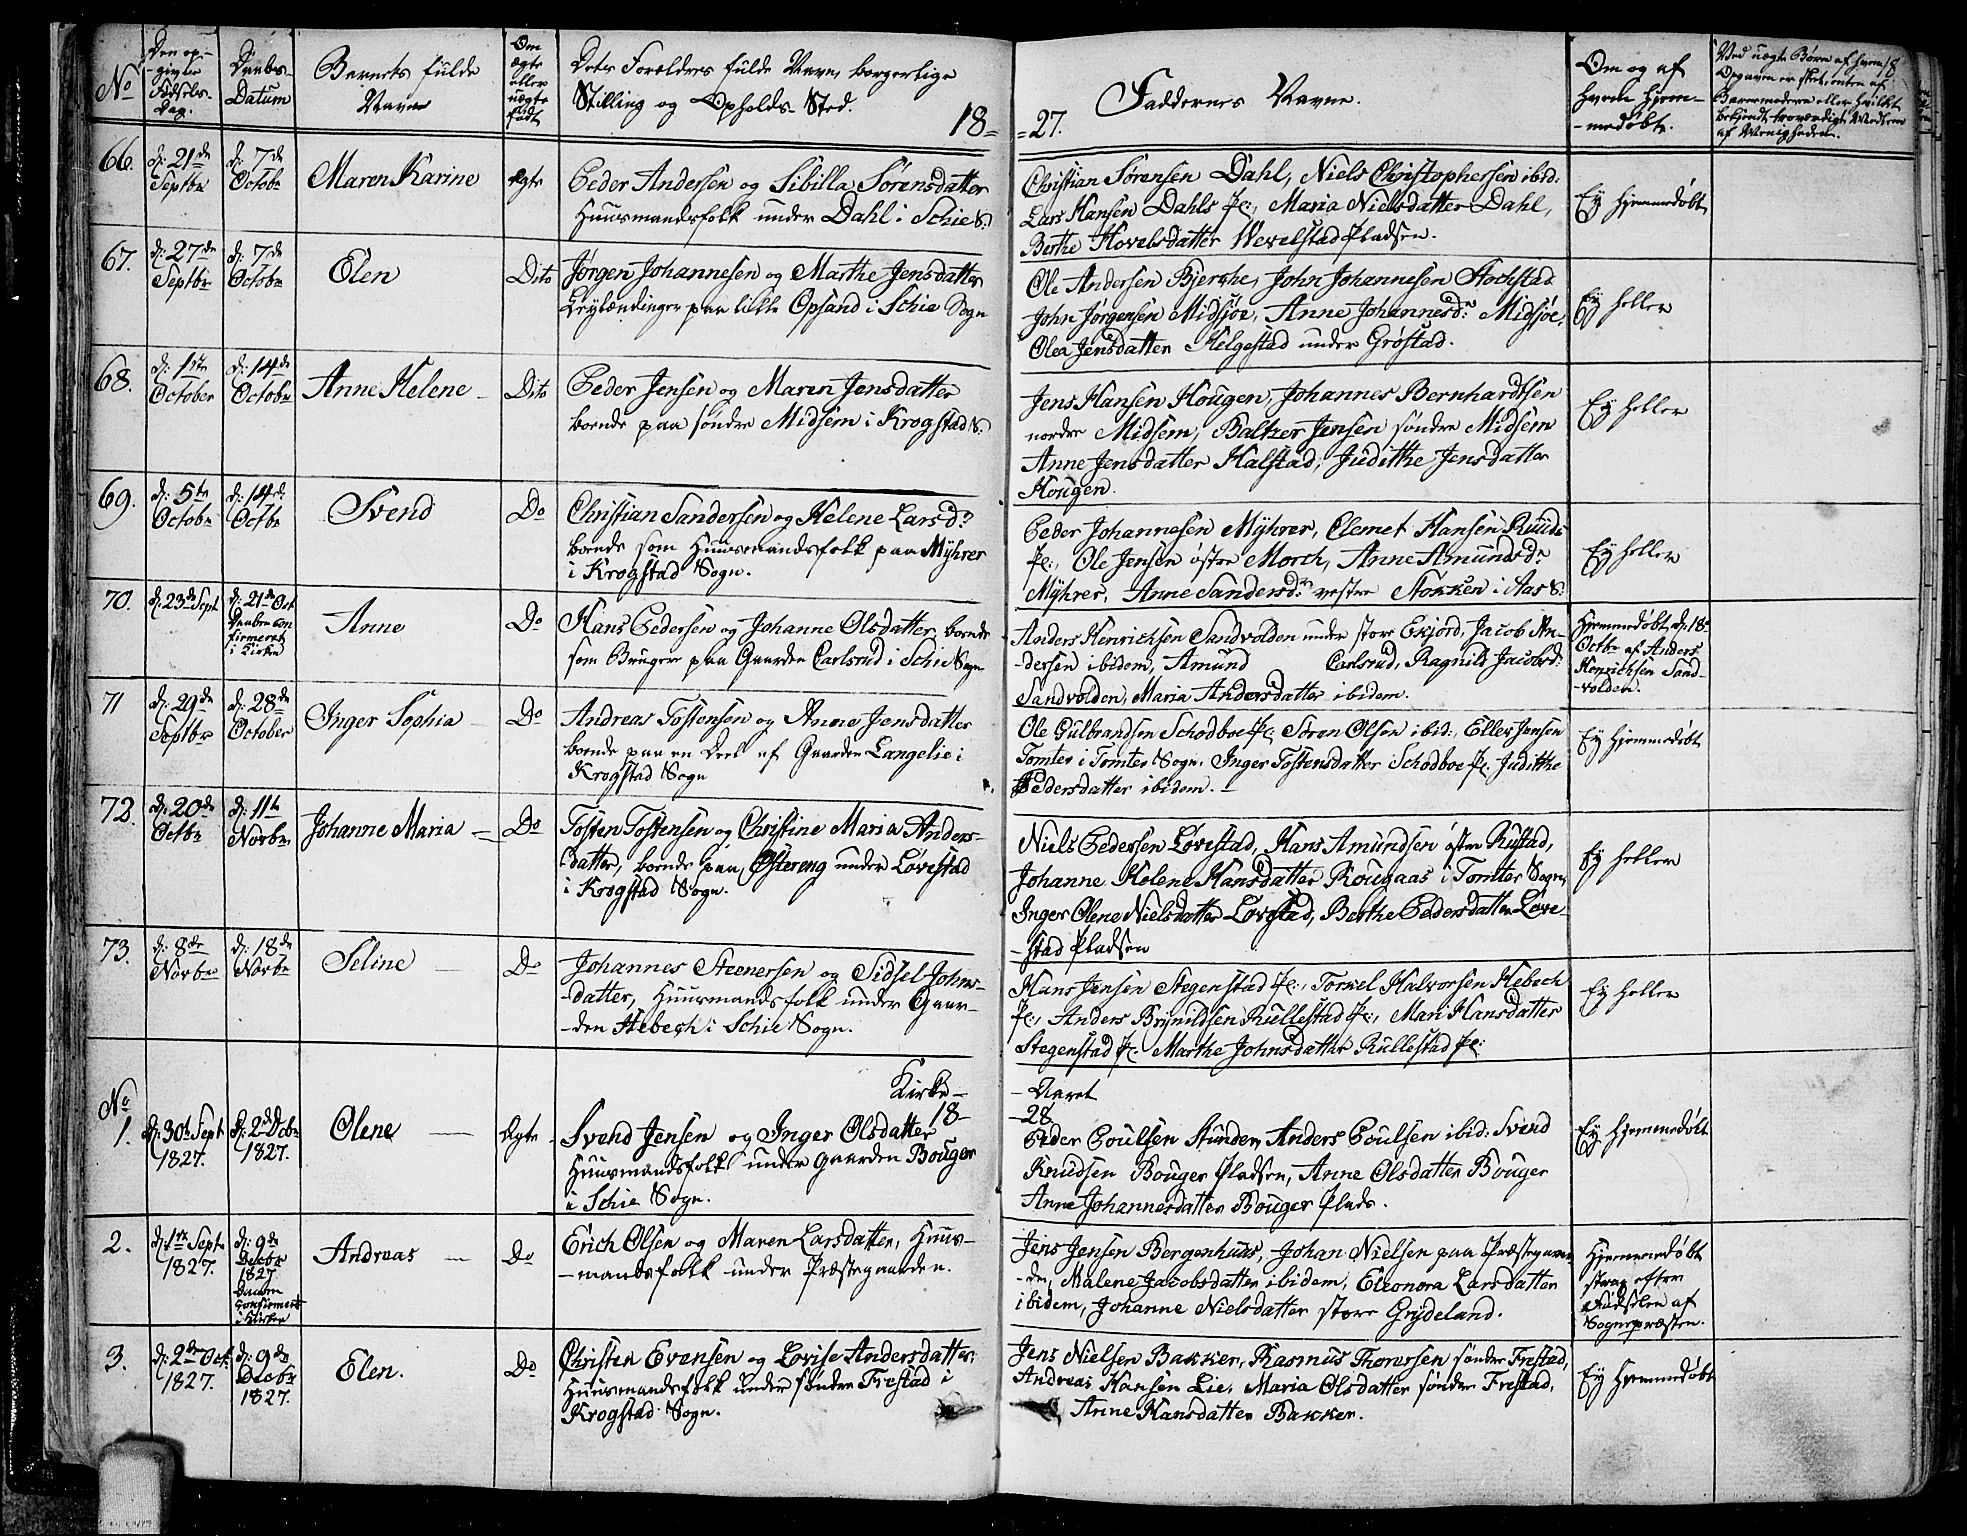 No
Den op-
-givne
Fødsels-
Dag.
Daabs-
Datum
Barnets fulde
Navne
Om
ægte
eller
uægte
født
Dets Forældres fulde Navn, borgerlige
Stilling og Opholds-Sted.
18-
-27.
Faddernes Navne.
Om og af
hvem hjem-
-medøbt.
Ved uægte Børn af hvem
Opgaven er skeet, enten af
Barnemoderen eller hvilket
bekjendt troværdigt Medlem
af Menigheden.
18
66.
d: 21de
Septbr
d: 7de
Octobr
Maren Karine
Ægte
Peder Andersen og Sibilla Sørensdatter
Huusmandsfolk under Dahl i Schie S:
Christian Sørensen Dahl, Niels Christophersen ibid:
Lars Hansen Dahls Pl:, Maria Nielsdatter Dahl,
Berthe Hovelsdatter Wevelstad Pladsen.
Ey hjemmedøbt
67.
d: 27de
Septbr
d: 7de
Octobr
Elen
Dito
Jørgen Johannesen og Marthe Jensdatter
Leylændinger paa lille Opsand i Schie Sogn
Ole Andersen Bjerche, John Johannesen Stochstad
John Jørgensen Midsjøe, Anne Johannesdr Midsjøe,
Olea Jensdatter Helgestad under Grøstad.
Ey heller
68.
d: 1ste
October
d: 14de
Octobr
Anne Helene
Dito
Peder Jensen og Maren Jensdatter
boende paa søndre Midsem i Krogstad S:
Jens Hansen Hougen, Johannes Bernhardtsen
nordre Midsem, Baltzer Jensen søndre Midsem
Anne Jensdatter Halstad, Judithe Jensdatter
Hougen.
Ey heller
69.
d: 5te
Octobr
d: 14de
Octbr
Svend
Do
Christian Sandersen og Helene Larsdr
boende som Huusmandsfolk paa Myhrer
i Krogstad Sogn.
Peder Johannesen Myhrer, Clemet Hansen Ruuds
Pl:, Ole Jensen østre Morch, Anne Amundsdr
Myhrer, Anne Sandersdr vestre Stokken i Aas S:
Ey heller
70.
d: 23de Sept
d: 21de Oct
Daaben con
firmeret
i Kirke
Anne
Do
Hans Pedersen og Johanne Olsdatter, boende
som Brugere paa Gaarden Carlsrud i Schie Sogn
Anders Henrichsen Sandvolden under store Eskjord, Jacob An-
-dersen ibidem, Amund Carlsrud, Ragnild Jacobsd:
Sandvolden, Maria Andersdatter ibidem.
Hjemmedøbt d: 18e
Octbr af Anders
Henrichsen Sand-
-volden.
71
d: 29de
Septbr
d: 28de
October
Inger Sophia
Do
Andreas Tostensen og Anne Jensdatter
boende paa en Deel af Gaarden Langelie i
Krogstad Sogn
Ole Gulbrandsen Schodboe Pl: Søren Olsen ibid:, Eller Jensen
Tomter i Tomter Sogn. Inger Tostensdatter Schodboe Pl. Judithe
Pedersdatter ibidem.
Ey hjemmedøbt
72.
d: 20de
Octbr
d: 11te
Novbr
Johanne Maria
Do
Tosten Tostensen og Christine Maria Anders-
datter, boende paa Østereng under Løvestad
i Krogstad Sogn.
Niels Pedersen Løvestad, Hans Amundsen østre Rustad,
Johanne Helene Hansdatter Kougaas i Tomter Sogn,
Inger Olene Nielsdatter Løvstad, Berthe Pedersdatter Løve-
-stad Pladsen
Ey heller
73.
d: 8de
Novbr
d: 18de
Novbr
Seline
Do
Johannes Steenersen og Sidsel Johns-
-datter, Huusmandsfolk under Gaar-
-den Hebech i Schie Sogn.
Hans Jensen Stegenstad Pl:, Torkel Halvorsen Hebech
Pl:, Anders Brynildsen Rullestad Pl:, Mari Hansdatter
Stegenstad Pl. Marthe Johnsdatter Rullestad Pl:
Ey heller
Kirke-
-Aaret
18-
-28
No
1.
d: 30te Sept
1827.
d: 2den Decbr
1827.
Olene
Ægte
Svend Jensen og Inger Olsdatter
Huusmandsfolk under Gaarden Bouger
i Schie Sogn.
Peder Poulsen Stunder, Anders Poulsen ibid: Svend
Knudsen Bouger Pladsen, Anne Olsdatter Bouger
Anne Johannesdatter Bouger Plads.
Ey hjemmedøbt
2.
d: 1ste Sept.
1827.
d: 9de
Decbr
1827
Daaben
Confirmeret
i Kirken
Andreas
Do
Erich Olsen og Maren Larsdatter, Huus-
-mandsfolk under Præstegaarden.
Jens Jensen Bergenhuus, Johan Nielsen paa Præstegaar-
-den, Malene Jacobsdatter ibidem, Eleonora Larsdatter
ibidem, Johanne Nielsdatter store Grydeland.
Hjemmedøbt
strax efter
Fødselen af
Sognepræsten.
3.
d: 2de Oct.
1827.
d: 9de
Decbr
1827.
Elen.
Do
Christen Evensen og Lovise Andersdatter
Huusmandsfolk under søndre Frestad i
Krogstad Sogn.
Jens Nielsen Bakker, Rasmus Thoresen søndre Frestad,
Andreas Hansen Lie, Maria Olsdatter søndre Frestad,
Anne Hansdatter Bakker.
Ey hjemmedøbt